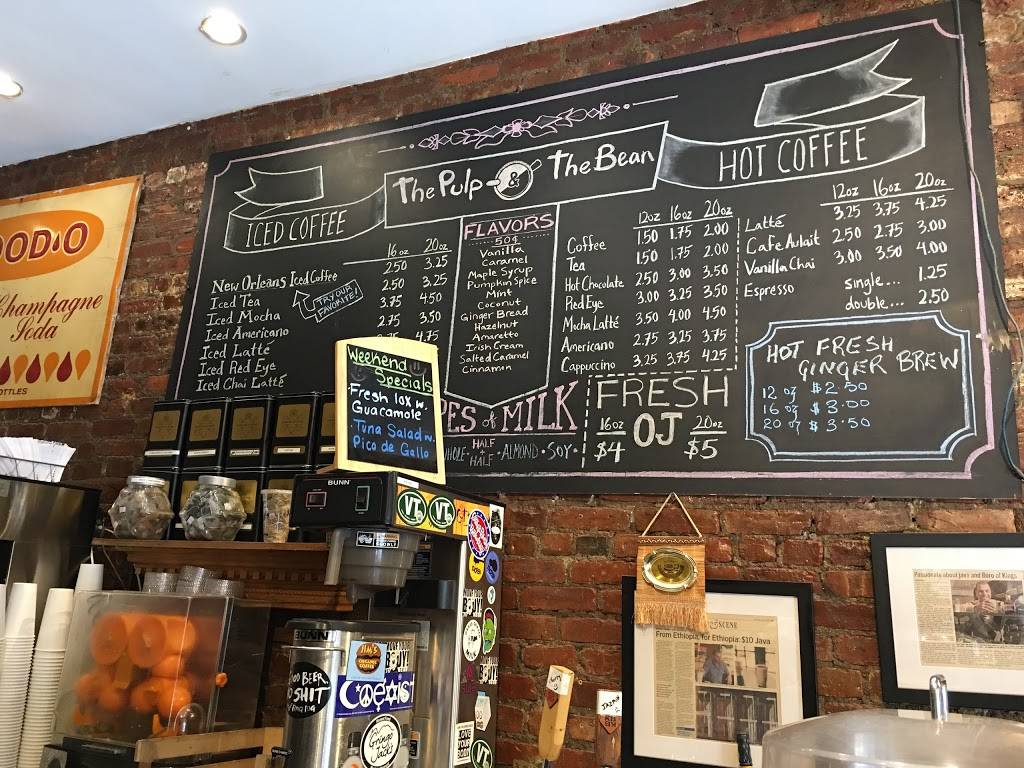 OOD-O
Champagne
Soda
OTTLES
The Pulp & The Bean
ICED COFFEE
16 oz 20 oz
New Orleans Iced Coffee 2.50 3.25
Iced Tea 2.50 3.25
Iced Mocha 3.75 4.50
Iced Americano 2.75 3.50
Iced Latté 4.75
Iced Red Eye
Iced Chai Latté
TRY OUR
FAVORITE!
FLAVORS
50¢
Vanilla
Caramel
Maple Syrup
Pumpkin Spice
Mint
Coconut
Ginger Bread
Hazelnut
Amaretto
Irish Cream
Salted Caramel
Cinnamon
PES of MILK
WHOLE · HALF + HALF · ALMOND · SOY ·
HOT COFFEE
12oz 16oz 20oz
Coffee 1.50 1.75 2.00
Tea 1.50 1.75 2.00
Hot Chocolate 2.50 3.00 3.50
Red Eye 3.00 3.25 3.50
Mocha Latté 3.50 4.00 4.50
Americano 2.75 3.25 3.75
Cappuccino 3.25 3.75 4.25
12oz 16oz 20oz
Latté 3.25 3.75 4.25
Cafe Aulait 2.50 2.75 3.00
Vanilla Chai 3.00 3.50 4.00
Espresso single... 1.25
double... 2.50
FRESH
OJ
16oz $4
20oz $5
HOT FRESH
GINGER BREW
12 oz $2.50
16 oz $3.00
20 oz $3.50
Weekend
Specials
Fresh 10x w.
Guacamole
Tuna Salad w.
Pico de Gallo
BUNN
VT
VT
JIM'S
ORGANIC
COFFEE
Coexist
Gringo
Jack's
SCENE
From Ethiopia, for Ethiopia: $10 Java
Passionate about java and Boro of Kings